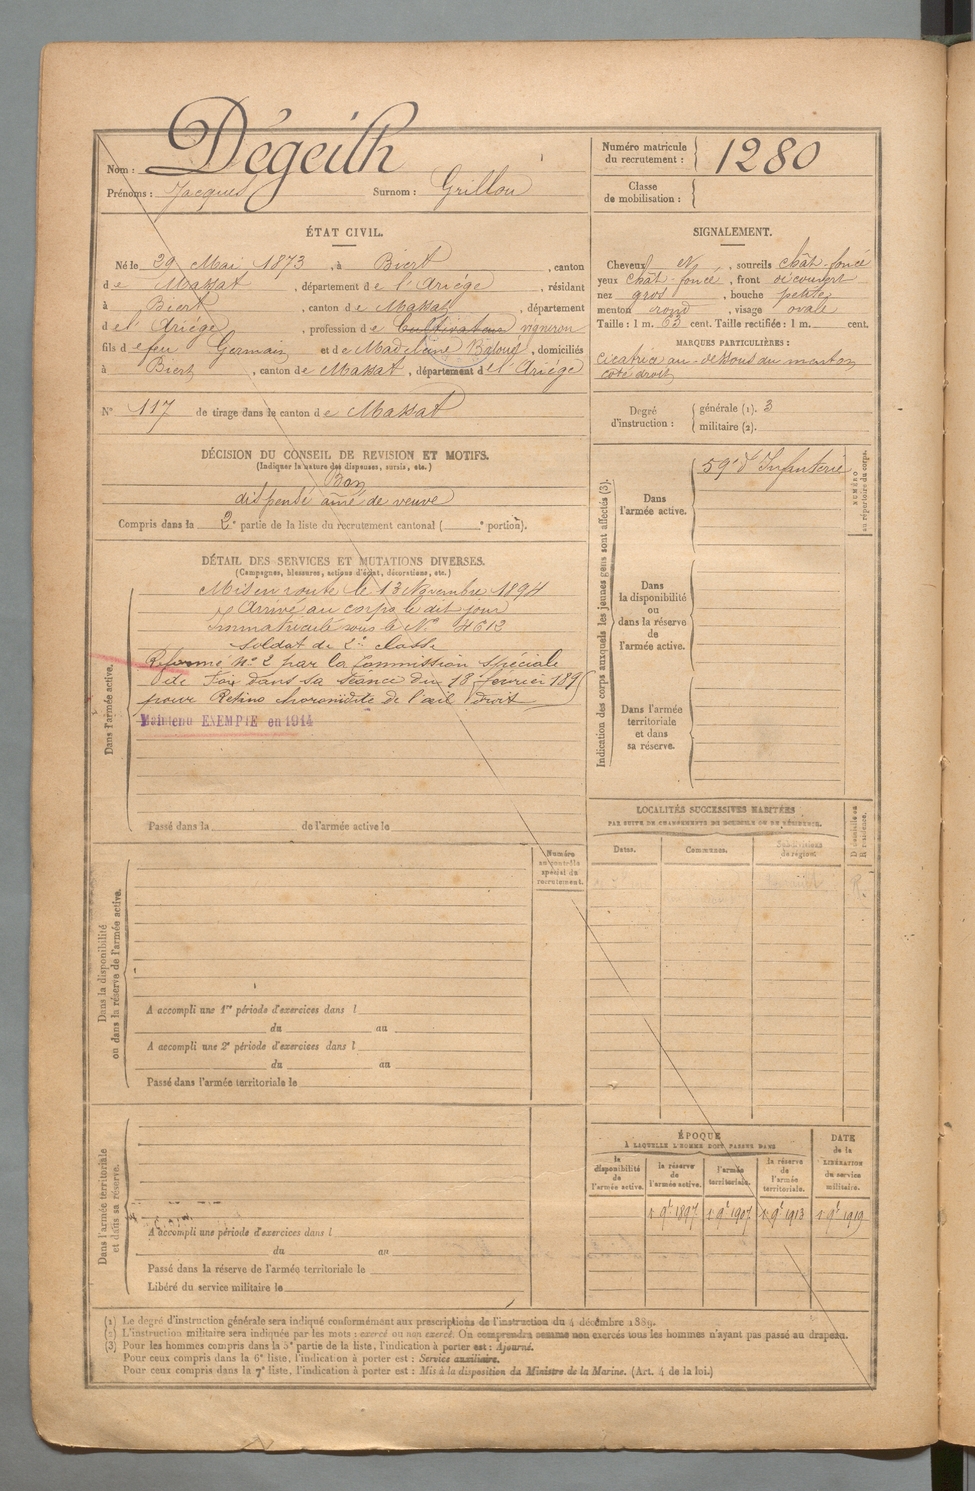 Nom : Dégeilh
Prénoms : Jacques Surnom : Grillou
Numéro matricule du recrutement : 1280
Classe de mobilisation :
ÉTAT CIVIL.
Né le 29 Mai 1873, à Biert, canton
de Massat, département de l'Ariége, résidant
à Biert, canton de Massat, département
de l'Ariége, profession de Cultivateur vigneron
fils de feu Germain et de Madeleine, domiciliés
à Biert, canton de Massat, département de l'Ariége
N° 117 de tirage dans le canton de Massat
SIGNALEMENT.
Cheveux et, sourcils chât-foncé
yeux chât-foncé, front découvert
nez gros, bouche petite
menton rond, visage ovale
Taille : 1 m. 63 cent. Taille rectifiée : 1 m. cent.
MARQUES PARTICULIÈRES :
Cicatrice au-dessous du menton
côté droit
Degré d'instruction : générale (1). 3
militaire (2).
DÉCISION DU CONSEIL DE REVISION ET MOTIFS.
(Indiquer la nature des dispenses, sursis, etc.)
Bon
dispensé aîné de veuve
Compris dans la 2e partie de la liste du recrutement cantonal ( e portion).
DÉTAIL DES SERVICES ET MUTATIONS DIVERSES.
(Campagnes, blessures, actions d'éclat, décorations, etc.)
Dans l'armée active.
Mis en route le 13 Novembre 1894
Arrivé au corps le dit jour
Immatriculé sous le N° 4612
Soldat de 2e classe
Réformé n° 2 par la Commission spéciale
de Foix dans sa séance du 18 février 189
pour Retino choroïdite de l'œil droit
Maintenu EXEMPTÉ en 1914
Passé dans la de l'armée active le
Indication des corps auxquels les jeunes gens sont affectés (3).
Dans l'armée active.
59e d'Infanterie
NUMÉRO au répertoire du corps.
Dans la disponibilité ou dans la réserve de l'armée active.
Dans l'armée territoriale et dans sa réserve.
LOCALITÉS SUCCESSIVES HABITÉES
PAR SUITE DE CHANGEMENTS DE DOMICILE OU DE RÉSIDENCE.
Dates. Communes. Subdivisions de région. D domicile ou R résidence.
Numéro au contrôle spécial du recrutement.
Dans la disponibilité ou dans la réserve de l'armée active.
A accompli une 1re période d'exercices dans l
du au
A accompli une 2e période d'exercices dans l
du au
Passé dans l'armée territoriale le
Dans l'armée territoriale et dans sa réserve.
A accompli une période d'exercices dans l
du au
Passé dans la réserve de l'armée territoriale le
Libéré du service militaire le
ÉPOQUE
À LAQUELLE L'HOMME DOIT PASSER DANS
la disponibilité de l'armée active. la réserve de l'armée active. l'armée territoriale. la réserve de l'armée territoriale.
DATE de la LIBÉRATION du service militaire.
1 9e 1897 1 9e 1907 1 9e 1913 1 9e 1919
(1) Le degré d'instruction générale sera indiqué conformément aux prescriptions de l'instruction du 4 décembre 1889.
(2) L'instruction militaire sera indiquée par les mots : exercé ou non exercé. On comprendra comme non exercés tous les hommes n'ayant pas passé au drapeau.
(3) Pour les hommes compris dans la 5e partie de la liste, l'indication à porter est : Ajourné.
Pour ceux compris dans la 6e liste, l'indication à porter est : Service auxiliaire.
Pour ceux compris dans la 7e liste, l'indication à porter est : Mis à la disposition du Ministre de la Marine. (Art. 4 de la loi.)